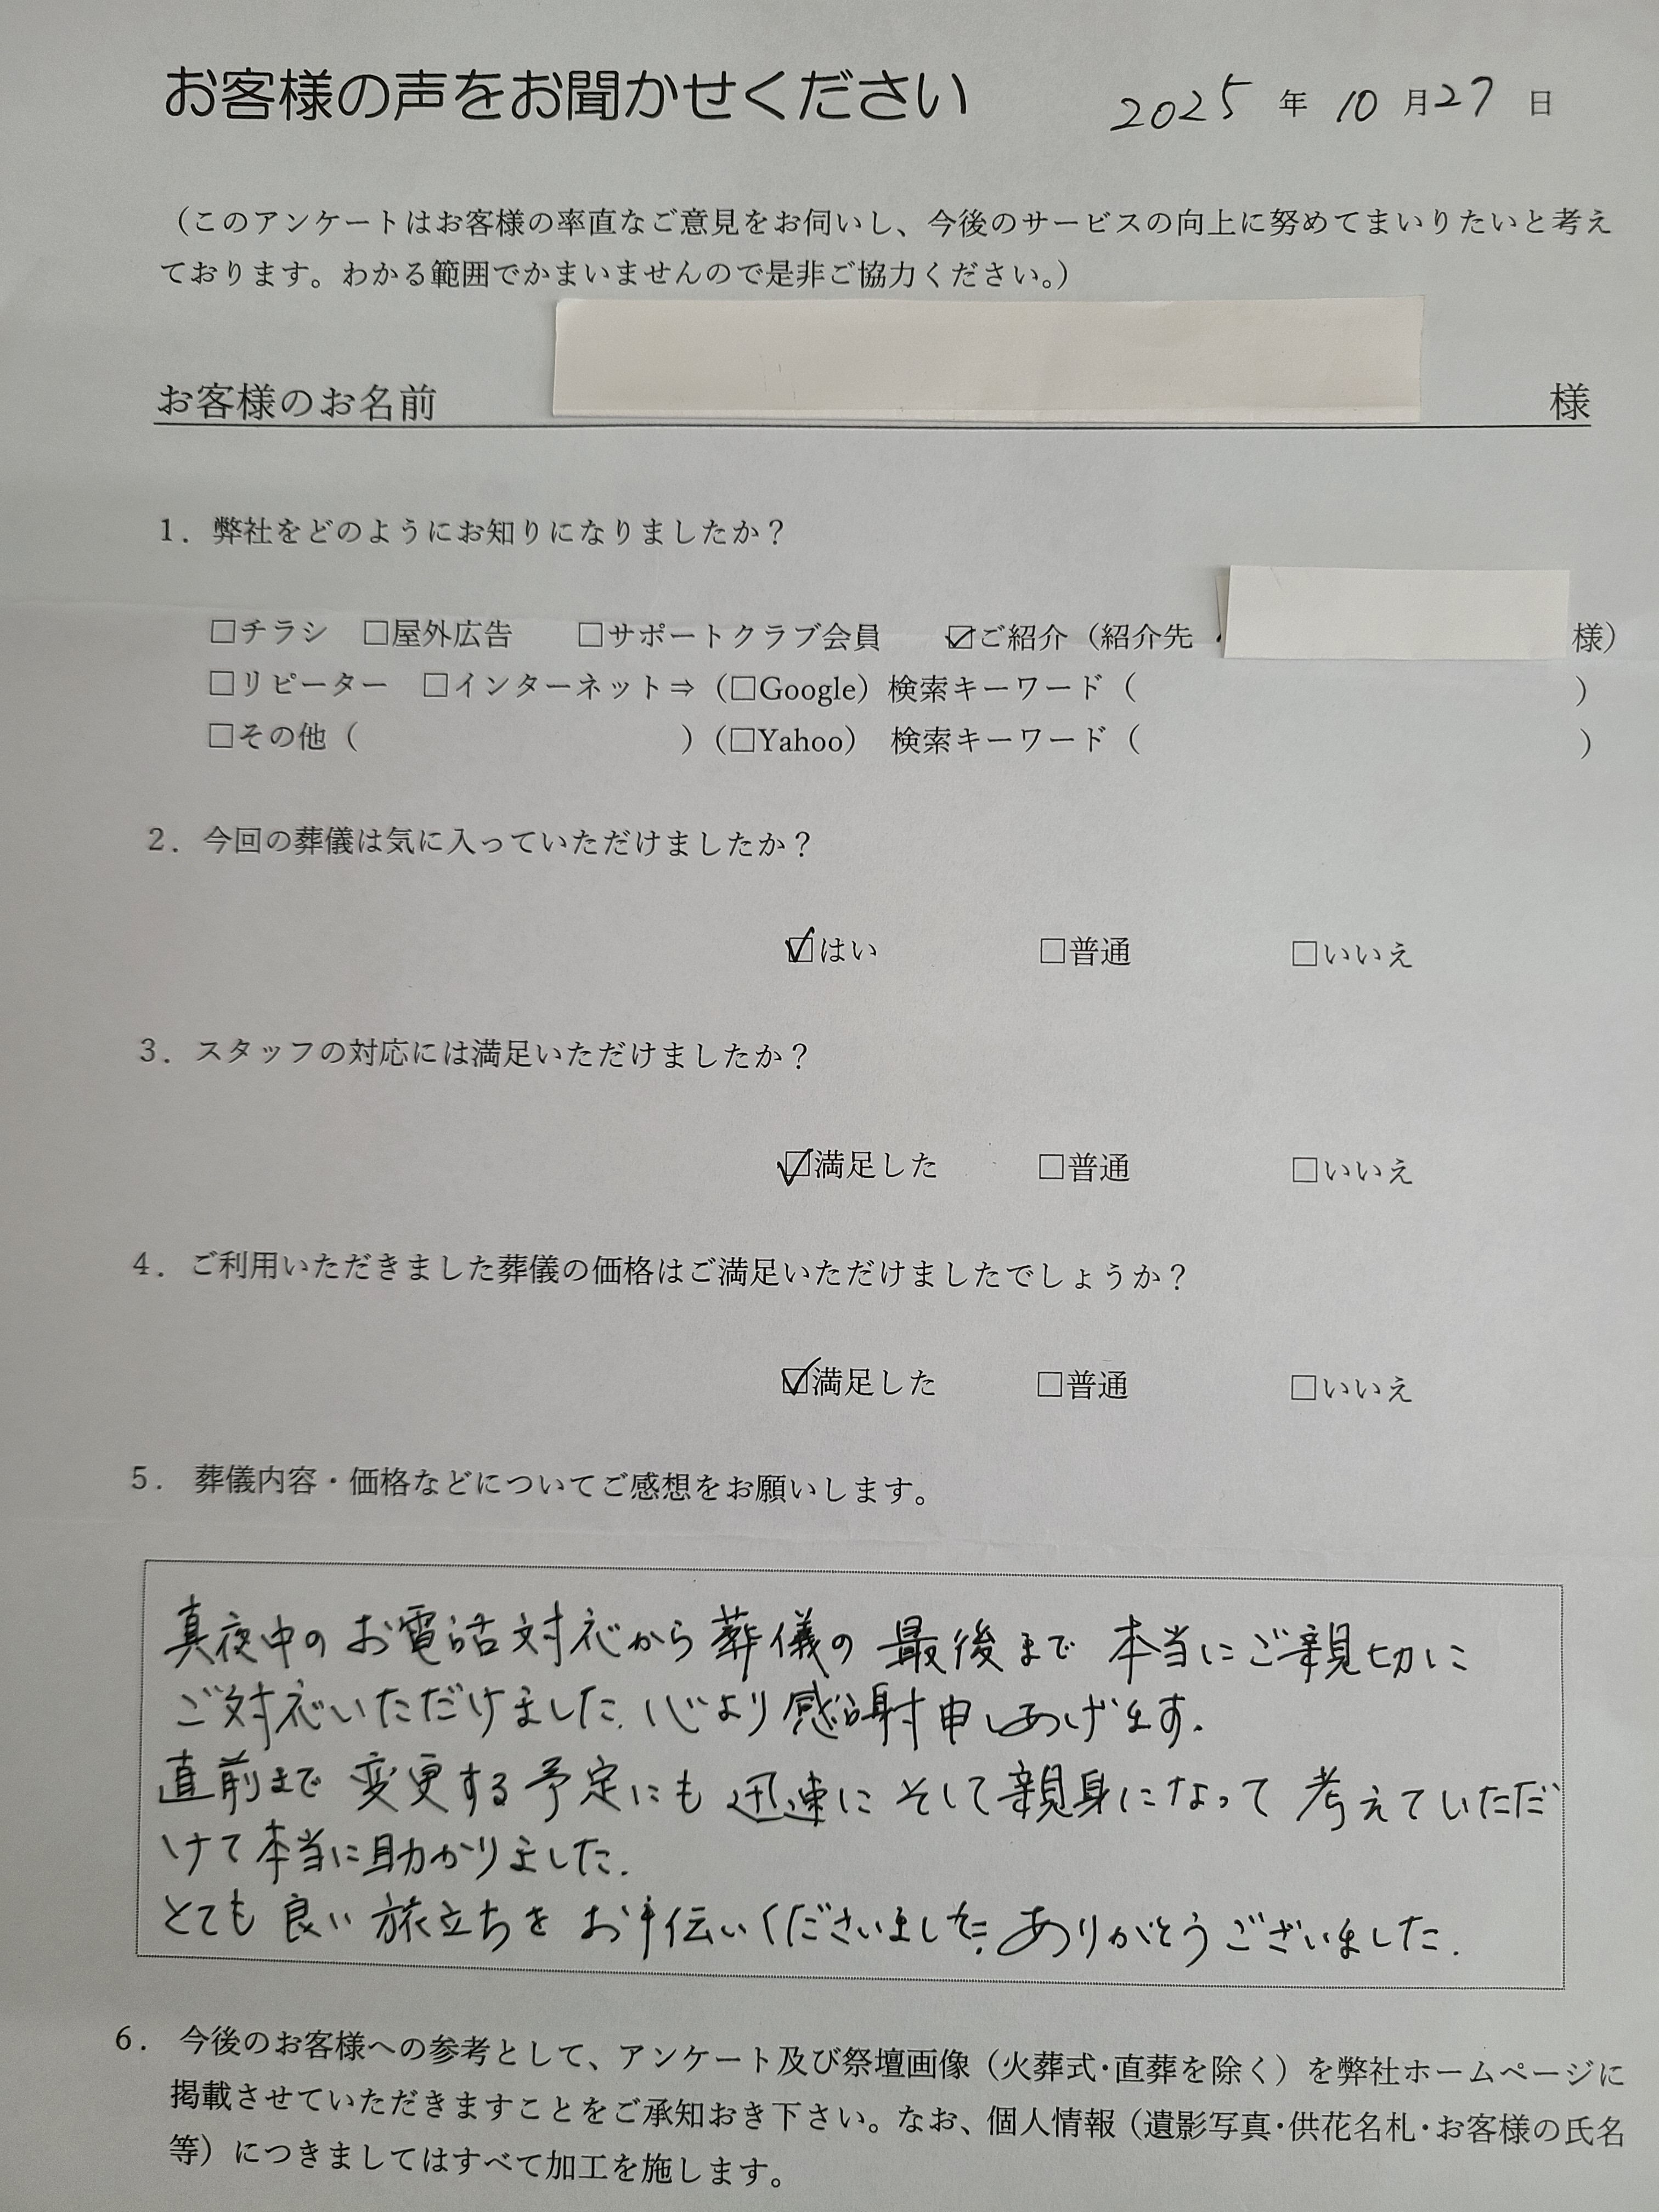 お客様の声をお聞かせください 2025年10月27日
（このアンケートはお客様の率直なご意見をお伺いし、今後のサービスの向上に努めてまいりたいと考え
ております。わかる範囲でかまいませんので是非ご協力ください。）
お客様のお名前 様
1．弊社をどのようにお知りになりましたか？
□チラシ □屋外広告 □サポートクラブ会員 ☑ご紹介（紹介先 様）
□リピーター □インターネット⇒（□Google）検索キーワード（ ）
□その他（ ）（□Yahoo） 検索キーワード（ ）
2．今回の葬儀は気に入っていただけましたか？
☑はい □普通 □いいえ
3．スタッフの対応には満足いただけましたか？
☑満足した □普通 □いいえ
4．ご利用いただきました葬儀の価格はご満足いただけましたでしょうか？
☑満足した □普通 □いいえ
5．葬儀内容・価格などについてご感想をお願いします。
真夜中のお電話対応から葬儀の最後まで本当にご親切に
ご対応いただけました。心より感謝申しあげます。
直前まで変更する予定にも迅速にそして親身になって考えていただ
けて本当に助かりました。
とても良い旅立ちをお手伝いくださいました。ありがとうございました。
6．今後のお客様への参考として、アンケート及び祭壇画像（火葬式・直葬を除く）を弊社ホームページに
掲載させていただきますことをご承知おき下さい。なお、個人情報（遺影写真・供花名札・お客様の氏名
等）につきましてはすべて加工を施します。